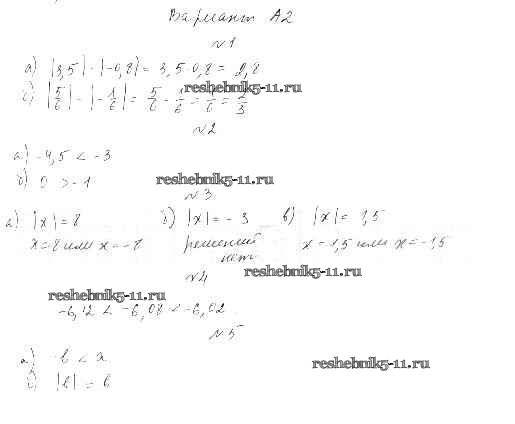 Вариант А2
№1
а) |3,5| · |-0,8| = 3,5·0,8 = 2,8
reshebnik5-11.ru
б) |5/6| - |-1/6| = 5/6 - 1/6 = 4/6 = 2/3
№2
а) -4,5 < -3
б) 0 > -1
reshebnik5-11.ru
№3
а) |x| = 8 б) |x| = -3 в) |x| = 1,5
x = 8 или x = -8 решений x = 1,5 или x = -1,5
нет
№4
reshebnik5-11.ru
reshebnik5-11.ru
-6,12 < -6,08 < -6,02
№5
а) b < a
reshebnik5-11.ru
б) |b| = b